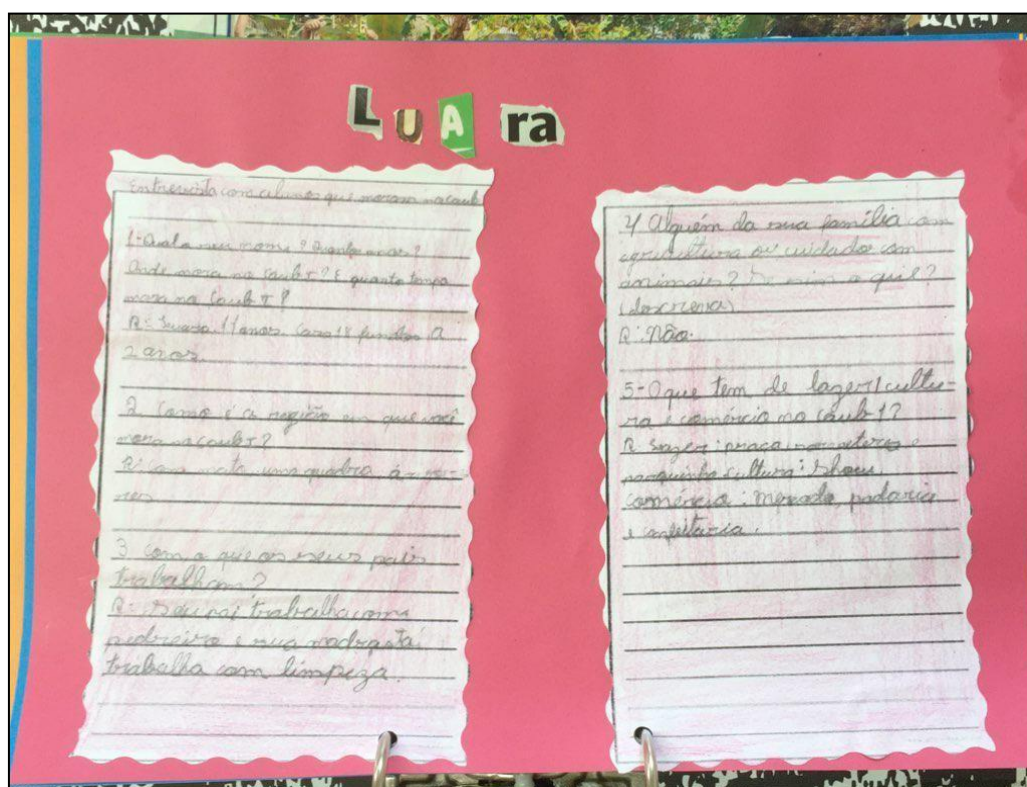 LUAra
Entrevista com alunos que moram na caub
1-Qual o seu nome? Quantos anos?
Onde mora na Caub I? E quanto tempo
mora na Caub I?
R: 11 anos Casa 18 fundos a
2 anos.
2 Como é a região em que você
mora na Caub I?
R: mata uma quadra
3 Com o que os seus pais
trabalham?
R: Seu pai trabalha como
pedreiro e sua madrasta
trabalha com limpeza.
4 Alguém da sua família com
agricultura ou cuidado com
animais? Se sim o quê?
(descreva)
R: Não.
5-O que tem de lazer/cultu-
ra e comércio no Caub 1?
R: Lazer: praça
parquinho cultura: Show
comércio: mercado, padaria
e confeitaria.